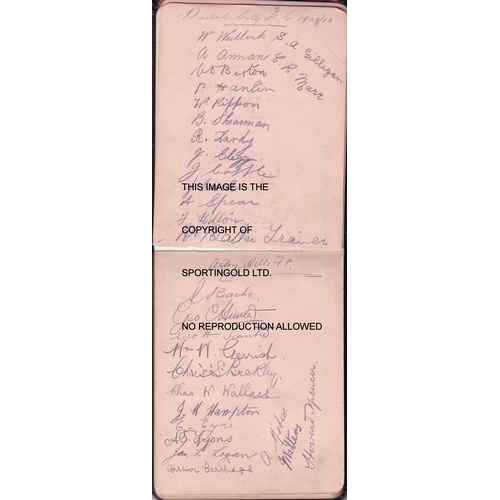 Bristol City F.C 1909/10
W Wedlock
S. A. Gilligan
A Annan
C. R. Marr
A Burton
P. Hanlin
W Rippon
B. Shearman
R. Hardy
J. Clegg
J Cottle
THIS IMAGE IS THE
A Spear
F. Hilton
COPYRIGHT OF
Trainer
Aston Villa F.C.
SPORTINGOLD LTD.
J Bache
Geo C Hunter
NO REPRODUCTION ALLOWED
Wm W. Gerrish.
Chris S Buckley.
Chas W Wallace
J. H Hampton
E. Eyre
A. Lyons
Jas L. Logan
Arthur Cartlidge
A
Miles
Howard Spencer